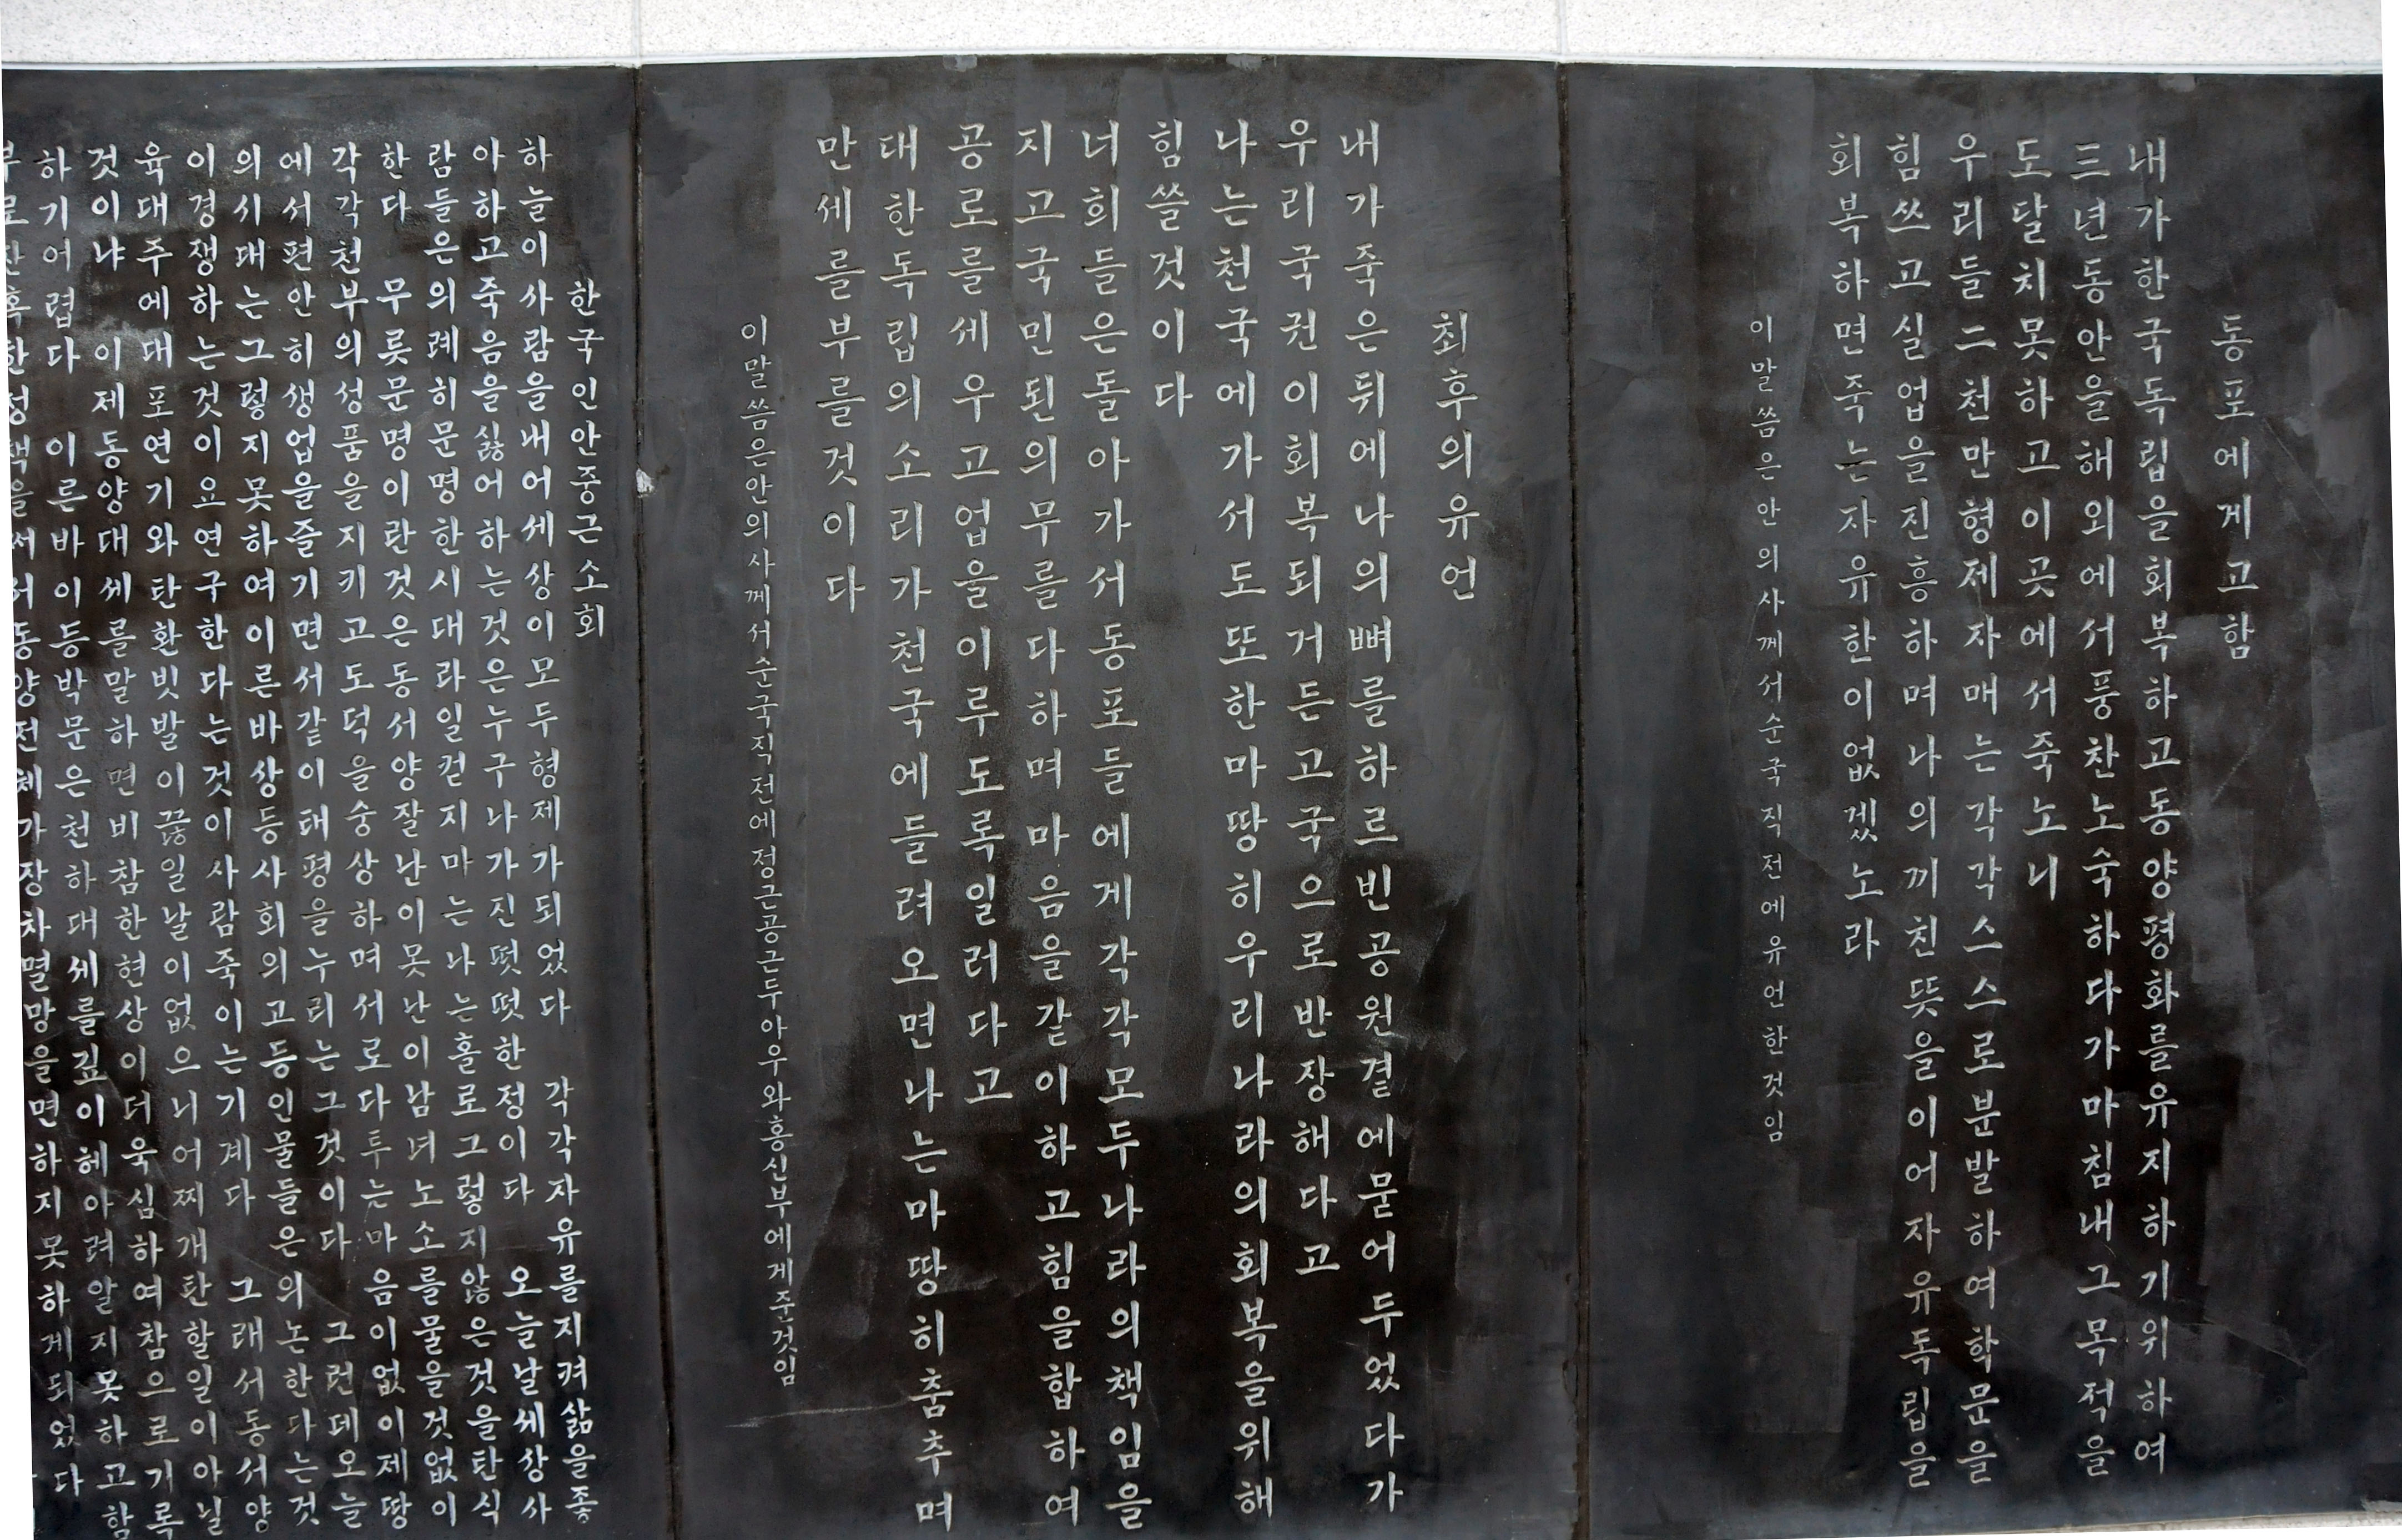 동포에게고함
내가한국독립을회복하고동양평화를유지하기위하여
三년동안을해외에서풍찬노숙하다가마침내그목적을
도달치못하고이곳에서죽노니
우리들二천만형제자매는각각스스로분발하여학문을
힘쓰고실업을진흥하며나의끼친뜻을이어자유독립을
회복하면죽는자유한이없겠노라
이말씀은안의사께서순국직전에유언한것임
최후의유언
내가죽은뒤에나의뼈를하르빈공원곁에묻어두었다가
우리국권이회복되거든고국으로반장해다고
나는천국에가서도또한마땅히우리나라의회복을위해
힘쓸것이다
너희들은돌아가서동포들에게각각모두나라의책임을
지고국민된의무를다하며마음을같이하고힘을합하여
공로를세우고업을이루도록일러다고
대한독립의소리가천국에들려오면나는마땅히춤추며
만세를부를것이다
이말씀은안의사께서순국직전에정근공근두아우와홍신부에게준것임
한국인안중근소회
하늘이사람을내어세상이모두형제가되었다 각각자유를지켜삶을좋
아하고죽음을싫어하는것은누구나가진떳떳한정이다 오늘날세상사
람들은의례히문명한시대라일컫지마는나는홀로그렇지않은것을탄식
한다 무릇문명이란것은동서양잘난이못난이남녀노소를물을것없이
각각천부의성품을지키고도덕을숭상하며서로다투는마음이없이제땅
에서편안히생업을즐기면서같이태평을누리는그것이다 그런데오늘
의시대는그렇지못하여이른바상등사회의고등인물들은의논한다는것
이경쟁하는것이요연구한다는것이사람죽이는기계다 그래서동서양
육대주에대포연기와탄환빗발이끊일날이없으니어찌개탄할일이아닐
것이냐 이제동양대세를말하면비참한현상이더욱심하여참으로기록
하기어렵다 이른바이등박문은천하대세를깊이헤아려알지못하고함
부로잔혹한정책을써서동양전체가장차멸망을면하지못하게되었다